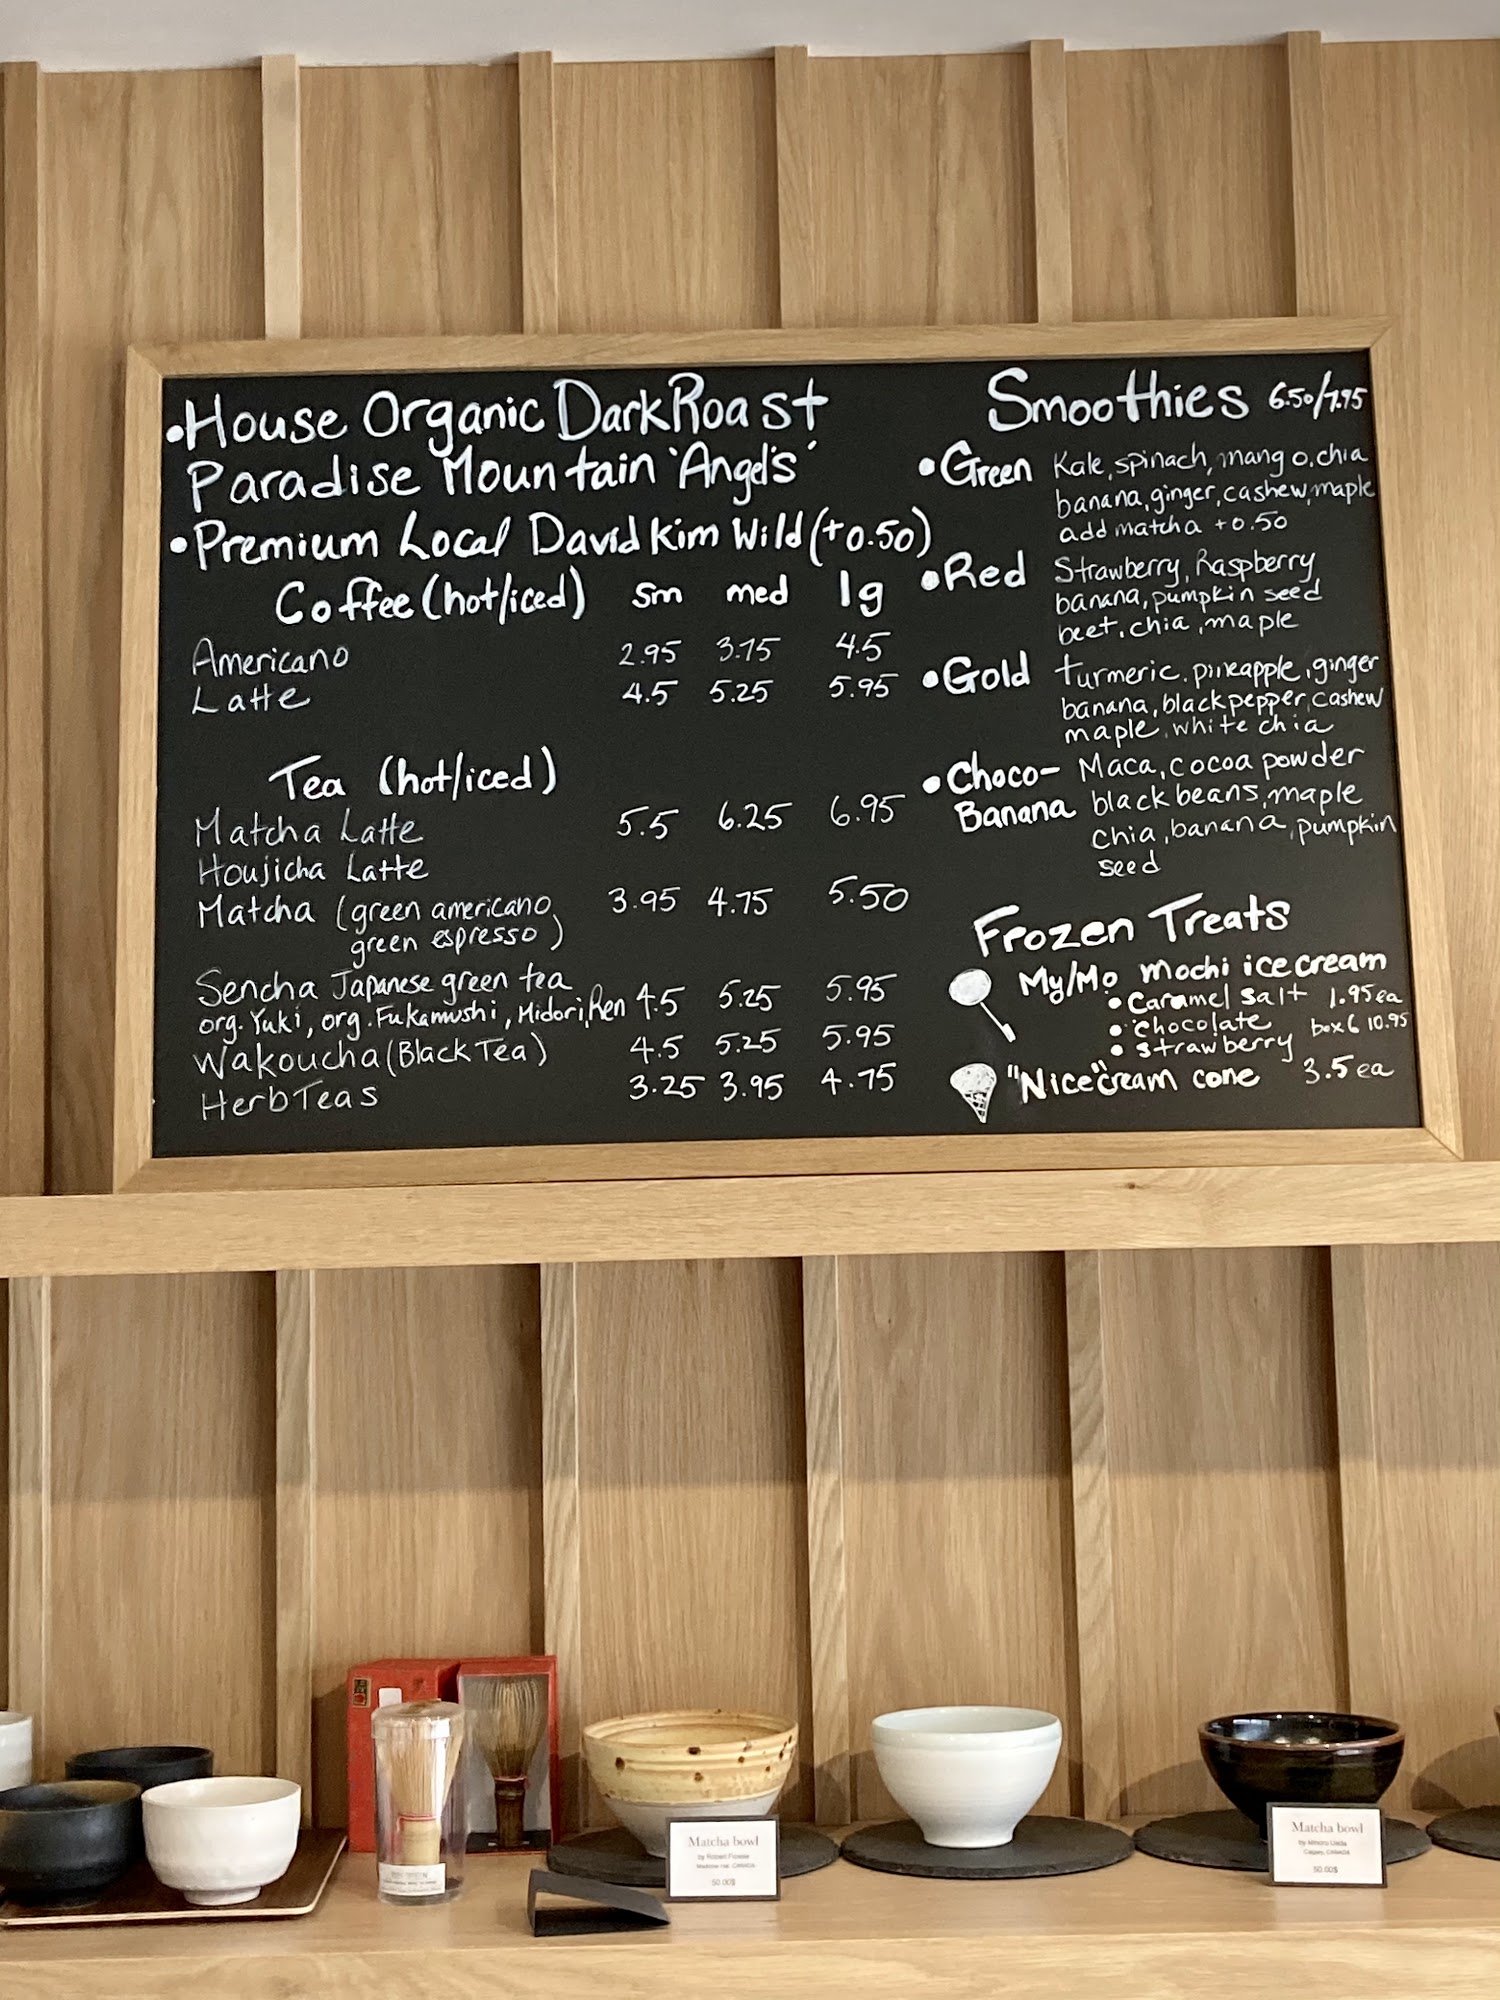 •House Organic Dark Roast
Paradise Mountain 'Angel's'
•Premium Local David Kim Wild (+0.50)
Coffee (hot/iced) sm med lg
Americano 2.95 3.75 4.5
Latte 4.5 5.25 5.95
Tea (hot/iced)
Matcha Latte 5.5 6.25 6.95
Houjicha Latte
Matcha (green americano, 3.95 4.75 5.50
green espresso)
Sencha Japanese green tea
org. Yuki, org. Fukamushi, Midori, Ren 4.5 5.25 5.95
Wakoucha (Black Tea) 4.5 5.25 5.95
Herb Teas 3.25 3.95 4.75
Smoothies 6.50/7.75
•Green Kale, spinach, mango, chia
banana, ginger, cashew, maple
add matcha +0.50
•Red Strawberry, Raspberry
banana, pumpkin seed
beet, chia, maple
•Gold turmeric, pineapple, ginger
banana, black pepper, cashew
maple, white chia
•Choco- Maca, cocoa powder
Banana black beans, maple
chia, banana, pumpkin
seed
Frozen Treats
My/Mo mochi ice cream
•Caramel salt 1.95 ea
•Chocolate box 6 10.95
•Strawberry
"Nice" cream cone 3.5 ea
Matcha bowl
by Robert
CANADA
50.00$
Matcha bowl
by
Calgary, CANADA
50.00$